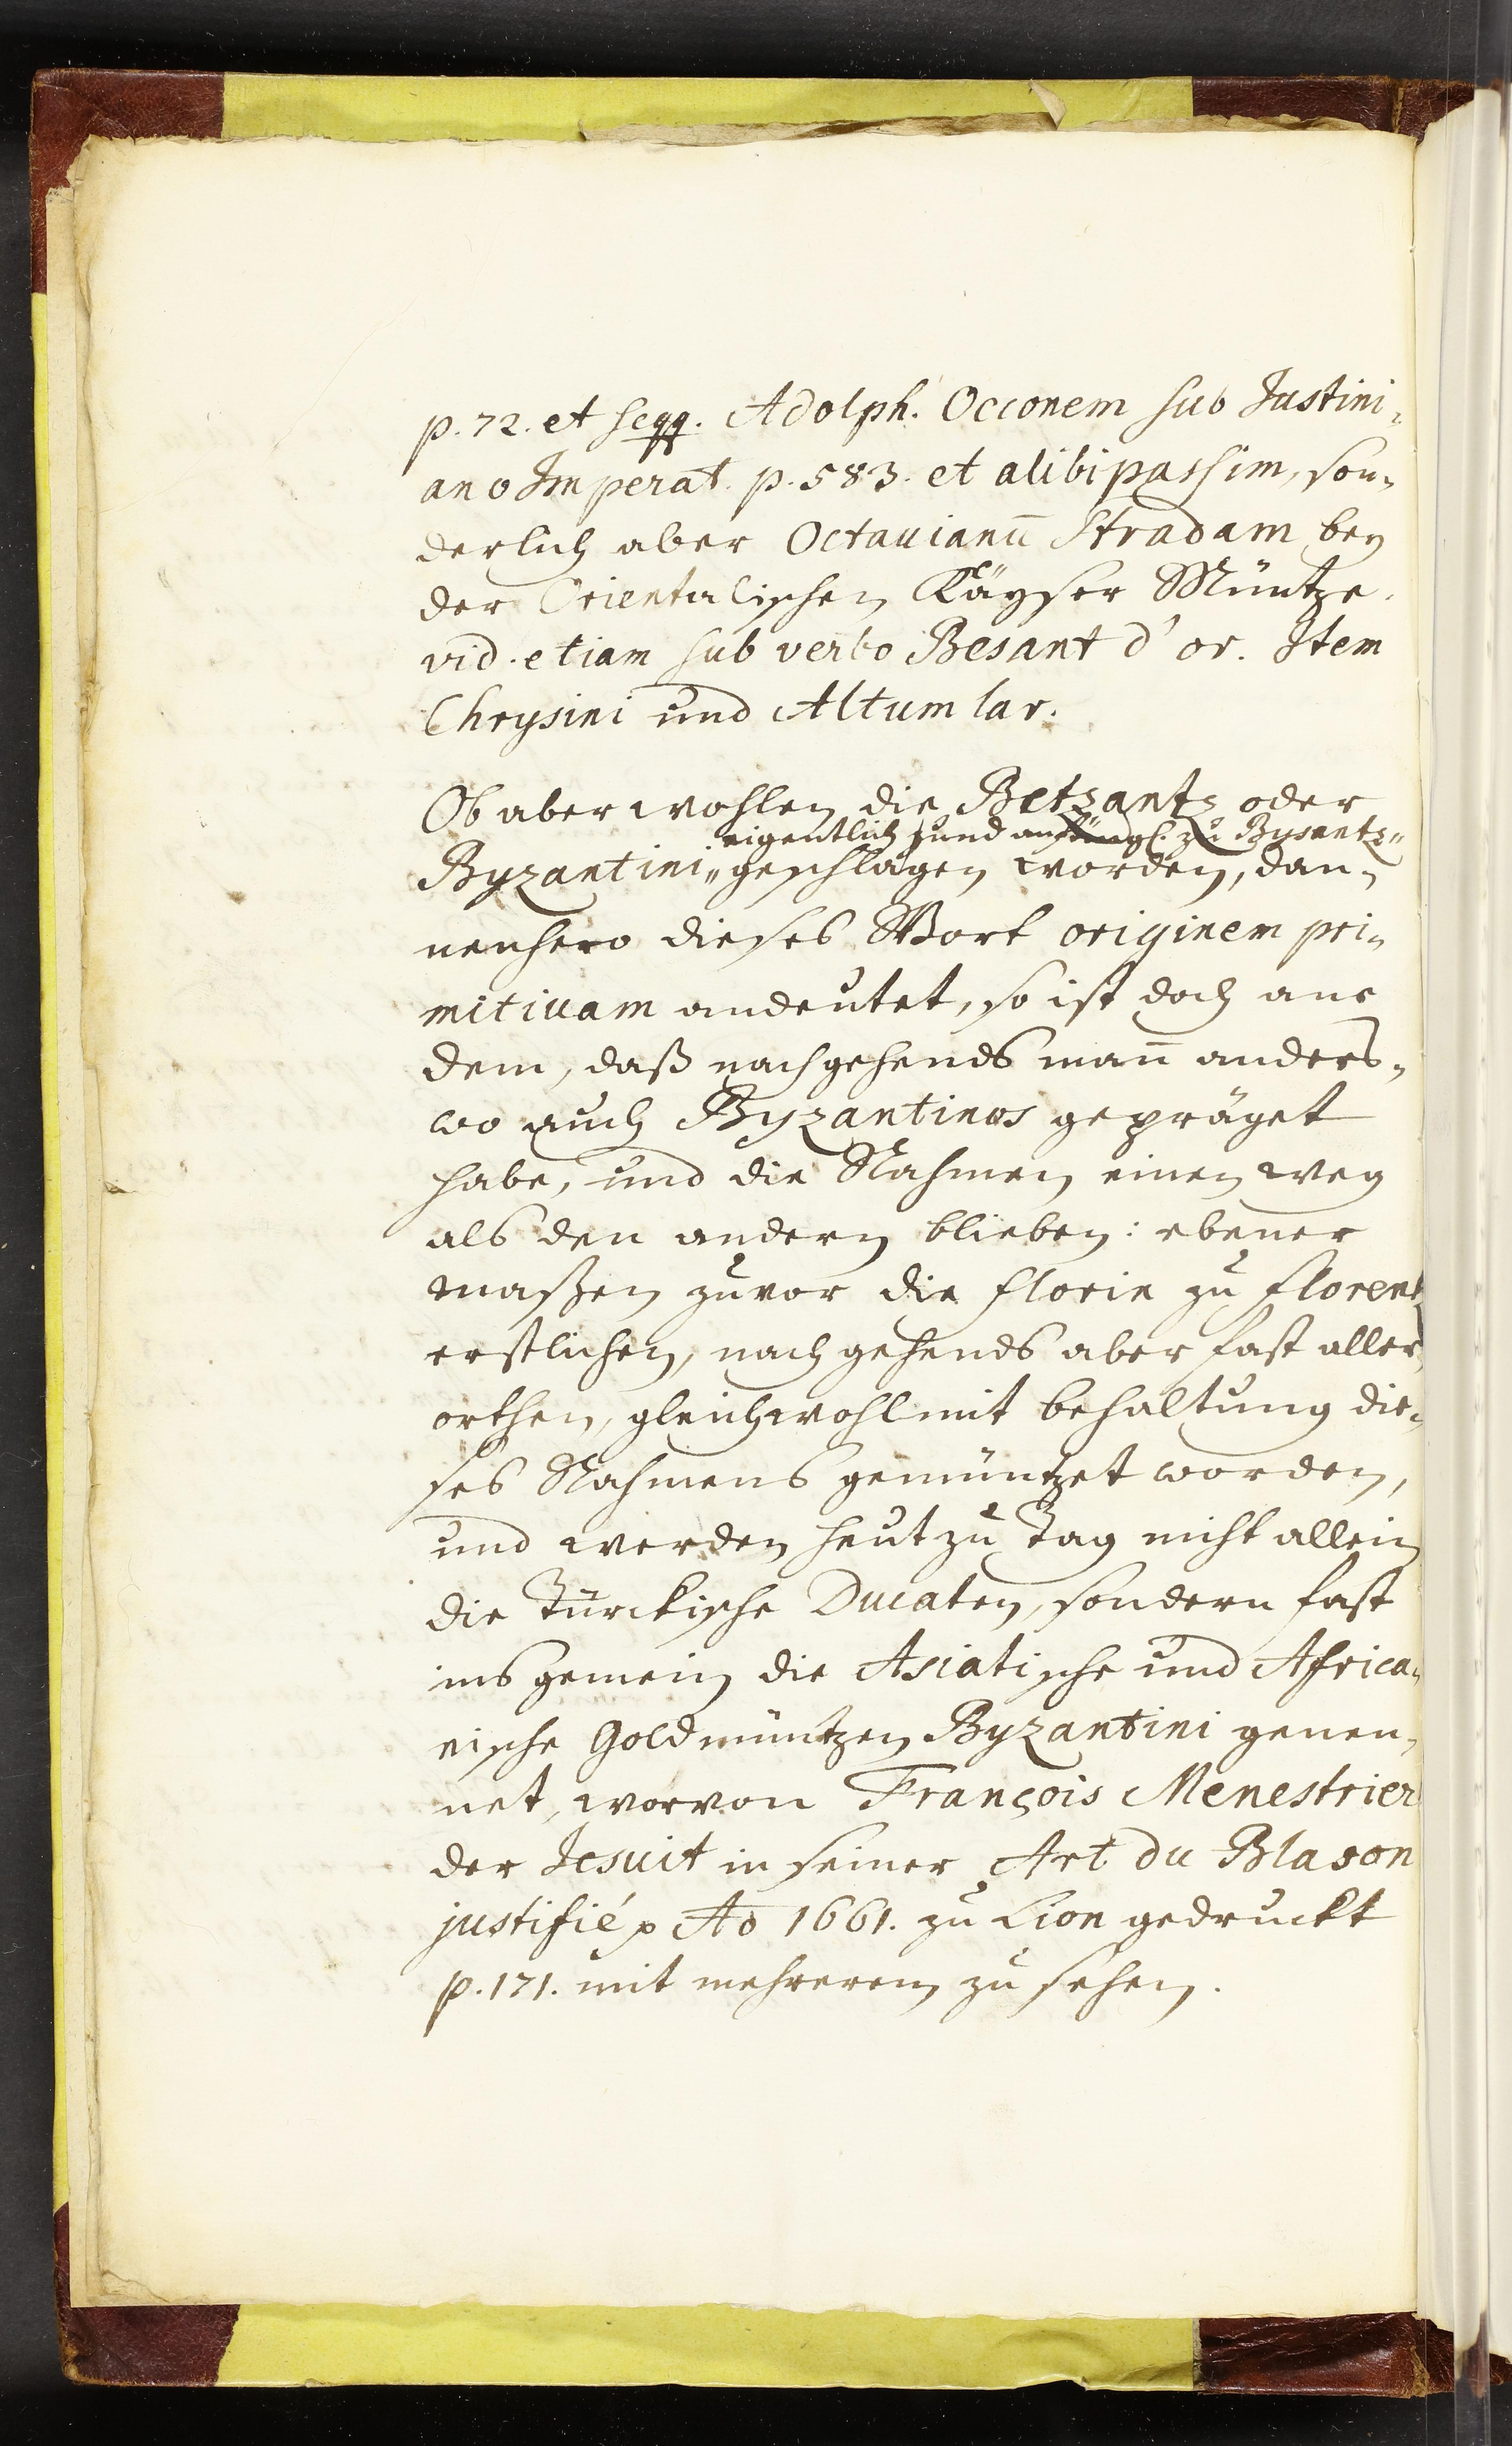 p. 72. et seqq. Adolph. Occonem sub Justini-
ano Imperat. p. 583. et alibi passim, son-
derlich aber Octauianū Stradam bey
der Orientalischen Käyser Müntze.
vid. etiam sub verbo Besant d'or. Item
Chrysini und Altumlar.
Ob aber wohlen die Betzantz oder
eigentlich und anfängl. zu Bysantz„
Byzantini„ geschlagen worden, dan-
nenhero dieses Wort originem pri-
mitiuam andeutet, so ist doch aus
dem, daß nachgehends man̄ anders-
wo auch Byzantinos gepräget
habe, und die Nahmen einen weg
als den andern blieben: ebener
maßen zuvor die florin zu florentz
erstlichen, nach gehends aber fast aller
orthen, gleichwohl mit behaltung die-
ses Nahmens gemüntzet worden,
und werden heut zu Tag nicht allein
die Türckische Ducaten, sondern fast
ins gemein die Asiatische und Africa-
nische Goldmüntzen Byzantini genen-
net, worvon François Menestrier
der Jesuit in seiner Art du Blason
justifié p Aō 1661. zu Lion gedruckt
p. 171. mit mehrerem zu sehen.